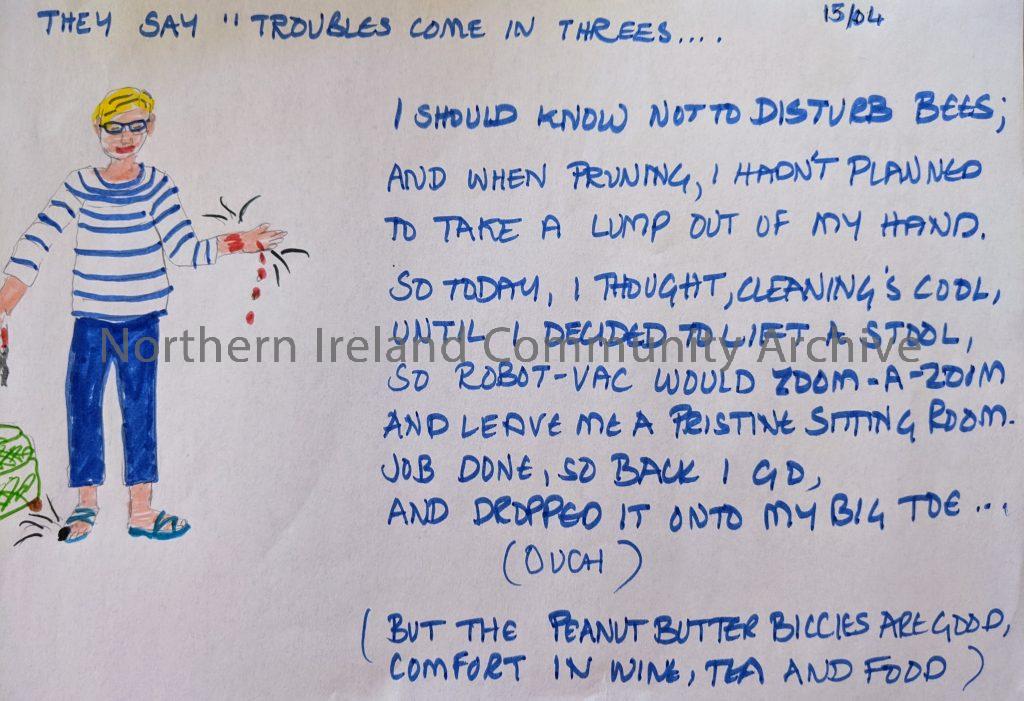 THEY SAY "TROUBLES COME IN THREES....
13/04
I SHOULD KNOW NOT TO DISTURB BEES;
AND WHEN PRUNING, I HADN'T PLANNED
TO TAKE A LUMP OUT OF MY HAND.
SO TODAY, I THOUGHT, CLEANING'S COOL,
UNTIL I DECIDED TO LIFT A STOOL,
Northern Ireland Community Archive
SO ROBOT-VAC WOULD ZOOM-A-ZOOM
AND LEAVE ME A PRISTINE SITTING ROOM.
JOB DONE, SO BACK I GO,
AND DROPPED IT ONTO MY BIG TOE...
(OUCH)
(BUT THE PEANUT BUTTER BICCIES ARE GOOD,
COMFORT IN WINE, TEA AND FOOD)